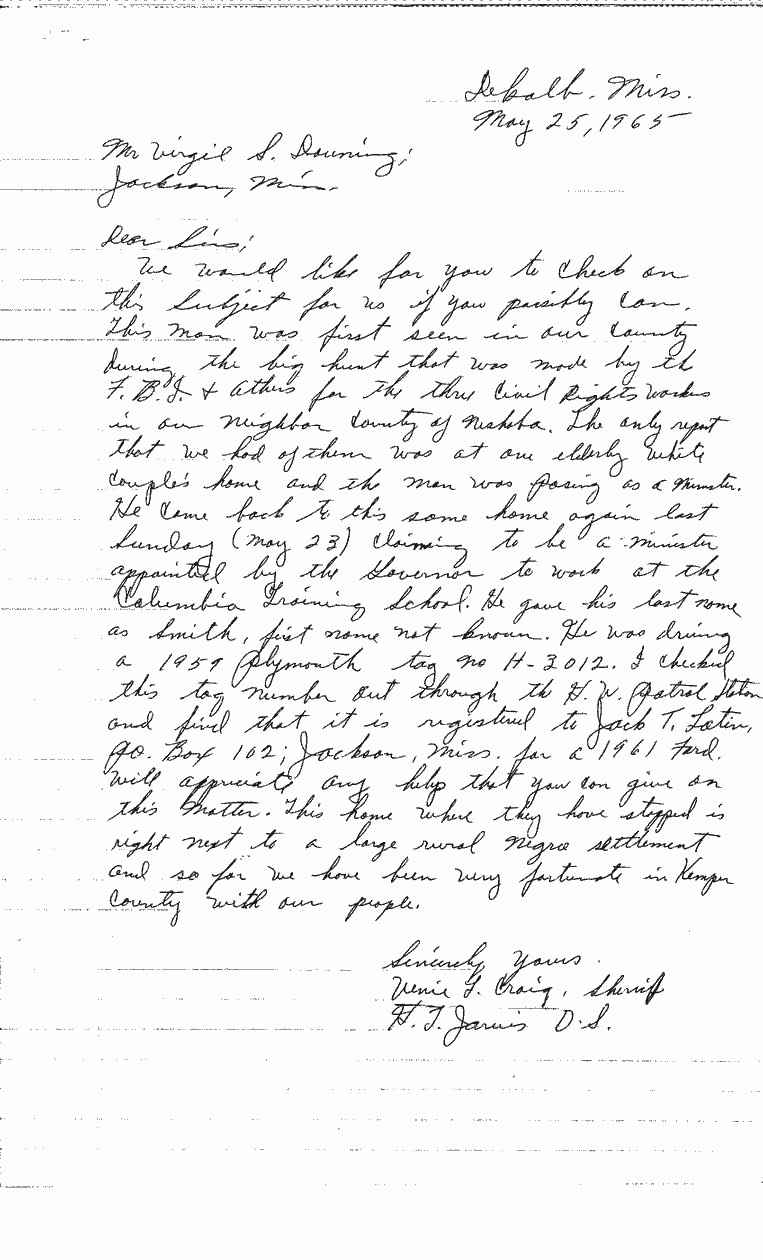 Dekalb, Miss.
May 25, 1965
Mr Virgil S. Downing;
Jackson, Miss.
Dear Sirs;
We would like for you to check on
this Subject for us if you possibly can.
This man was first seen in our County
during the big hunt that was made by th
F. B. I. & others for the three Civil Rights workers
in our neighbor County of Neshoba. The only report
that we had of them was at one elderly white
Couple's home and the man was posing as a Minister.
He came back to this same home again last
Sunday (May 23) Claiming to be a minister
appointed by the Governor to work at the
Columbia Training School. He gave his last name
as Smith, first name not known. He was driving
a 1959 Plymouth tag no H-3012. I checked
this tag number out through th H.W. Patrol Station
and find that it is registered to Jack T.
P.O. Box 102; Jackson, Miss. for a 1961 Ford.
Will appreciate any help that you can give on
this Matter. This home where they have stopped is
right next to a large rural Negroe settlement
and so far we have been very fortunate in Kemper
County with our people.
Sincerely Yours
L. Craig, Sheriff
H. T. Jarvis D.S.